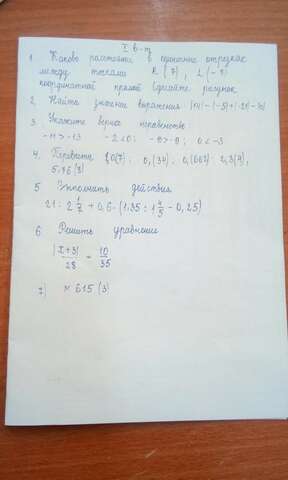 I в-т
1. Каково расстояние в единичных отрезках
между точками К (7), L (-8)
координатной прямой Сделайте рисунок
2. Найти значение выражения
3. Укажите верное неравенство
-11 > -13 -2 < 0; -8 > -9; 0 < -3
4. 0,(34); 0,(662); 2,3(4),
5,16(3)
5 Выполнить действия
21 : 2 1/7 + 0,6 · (1,35 : 1 4/5 - 0,25)
6 Решить уравнение
|x+3|/28 = 10/35
7) № 615 (3)